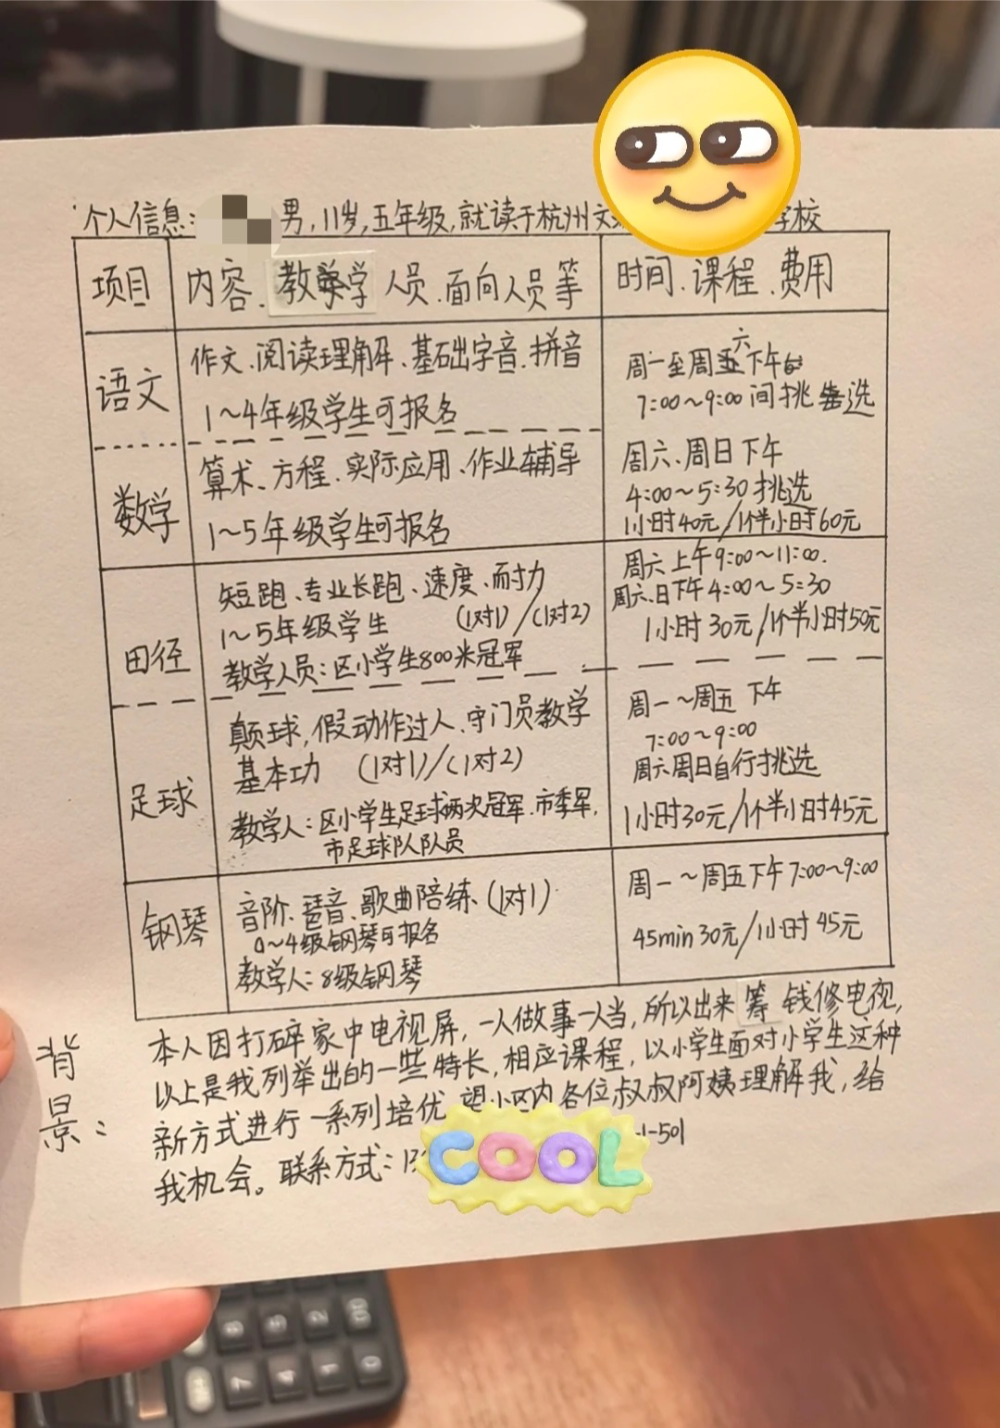 个人信息: 男,11岁,五年级,就读于杭州文 学校
项目
内容、教学人员、面向人员等
时间、课程、费用
语文
作文、阅读理解、基础字音、拼音
1~4年级学生可报名
周一至周六下午
7:00~9:00间挑选
数学
算术、方程、实际应用、作业辅导
1~5年级学生可报名
周六、周日下午
4:00~5:30挑选
1小时40元/1个半小时60元
田径
短跑、专业长跑、速度、耐力
1~5年级学生 (1对1)/(1对2)
教学人员:区小学生800米冠军
周六上午9:00~11:00.
周六、日下午4:00~5:30
1小时30元/1个半小时50元
足球
颠球,假动作过人、守门员教学
基本功 (1对1)/(1对2)
教学人:区小学生足球两次冠军.市季军,
市足球队队员
周一~周五下午
7:00~9:00
周六周日自行挑选
1小时30元/1个半小时45元
钢琴
音阶、琶音、歌曲陪练、(1对1)
0~4级钢琴可报名
教学人:8级钢琴
周一~周五下午7:00~9:00
45min 30元/1小时45元
背景:
本人因打碎家中电视屏,一人做事一人当,所以出来筹钱修电视,
以上是我列举出的一些特长,相应课程,以小学生面对小学生这种
新方式进行一系列培优 望小区内各位叔叔阿姨理解我,给
我机会。联系方式:13 -1-501
COOL
8 5 2 00
7 4 1 0